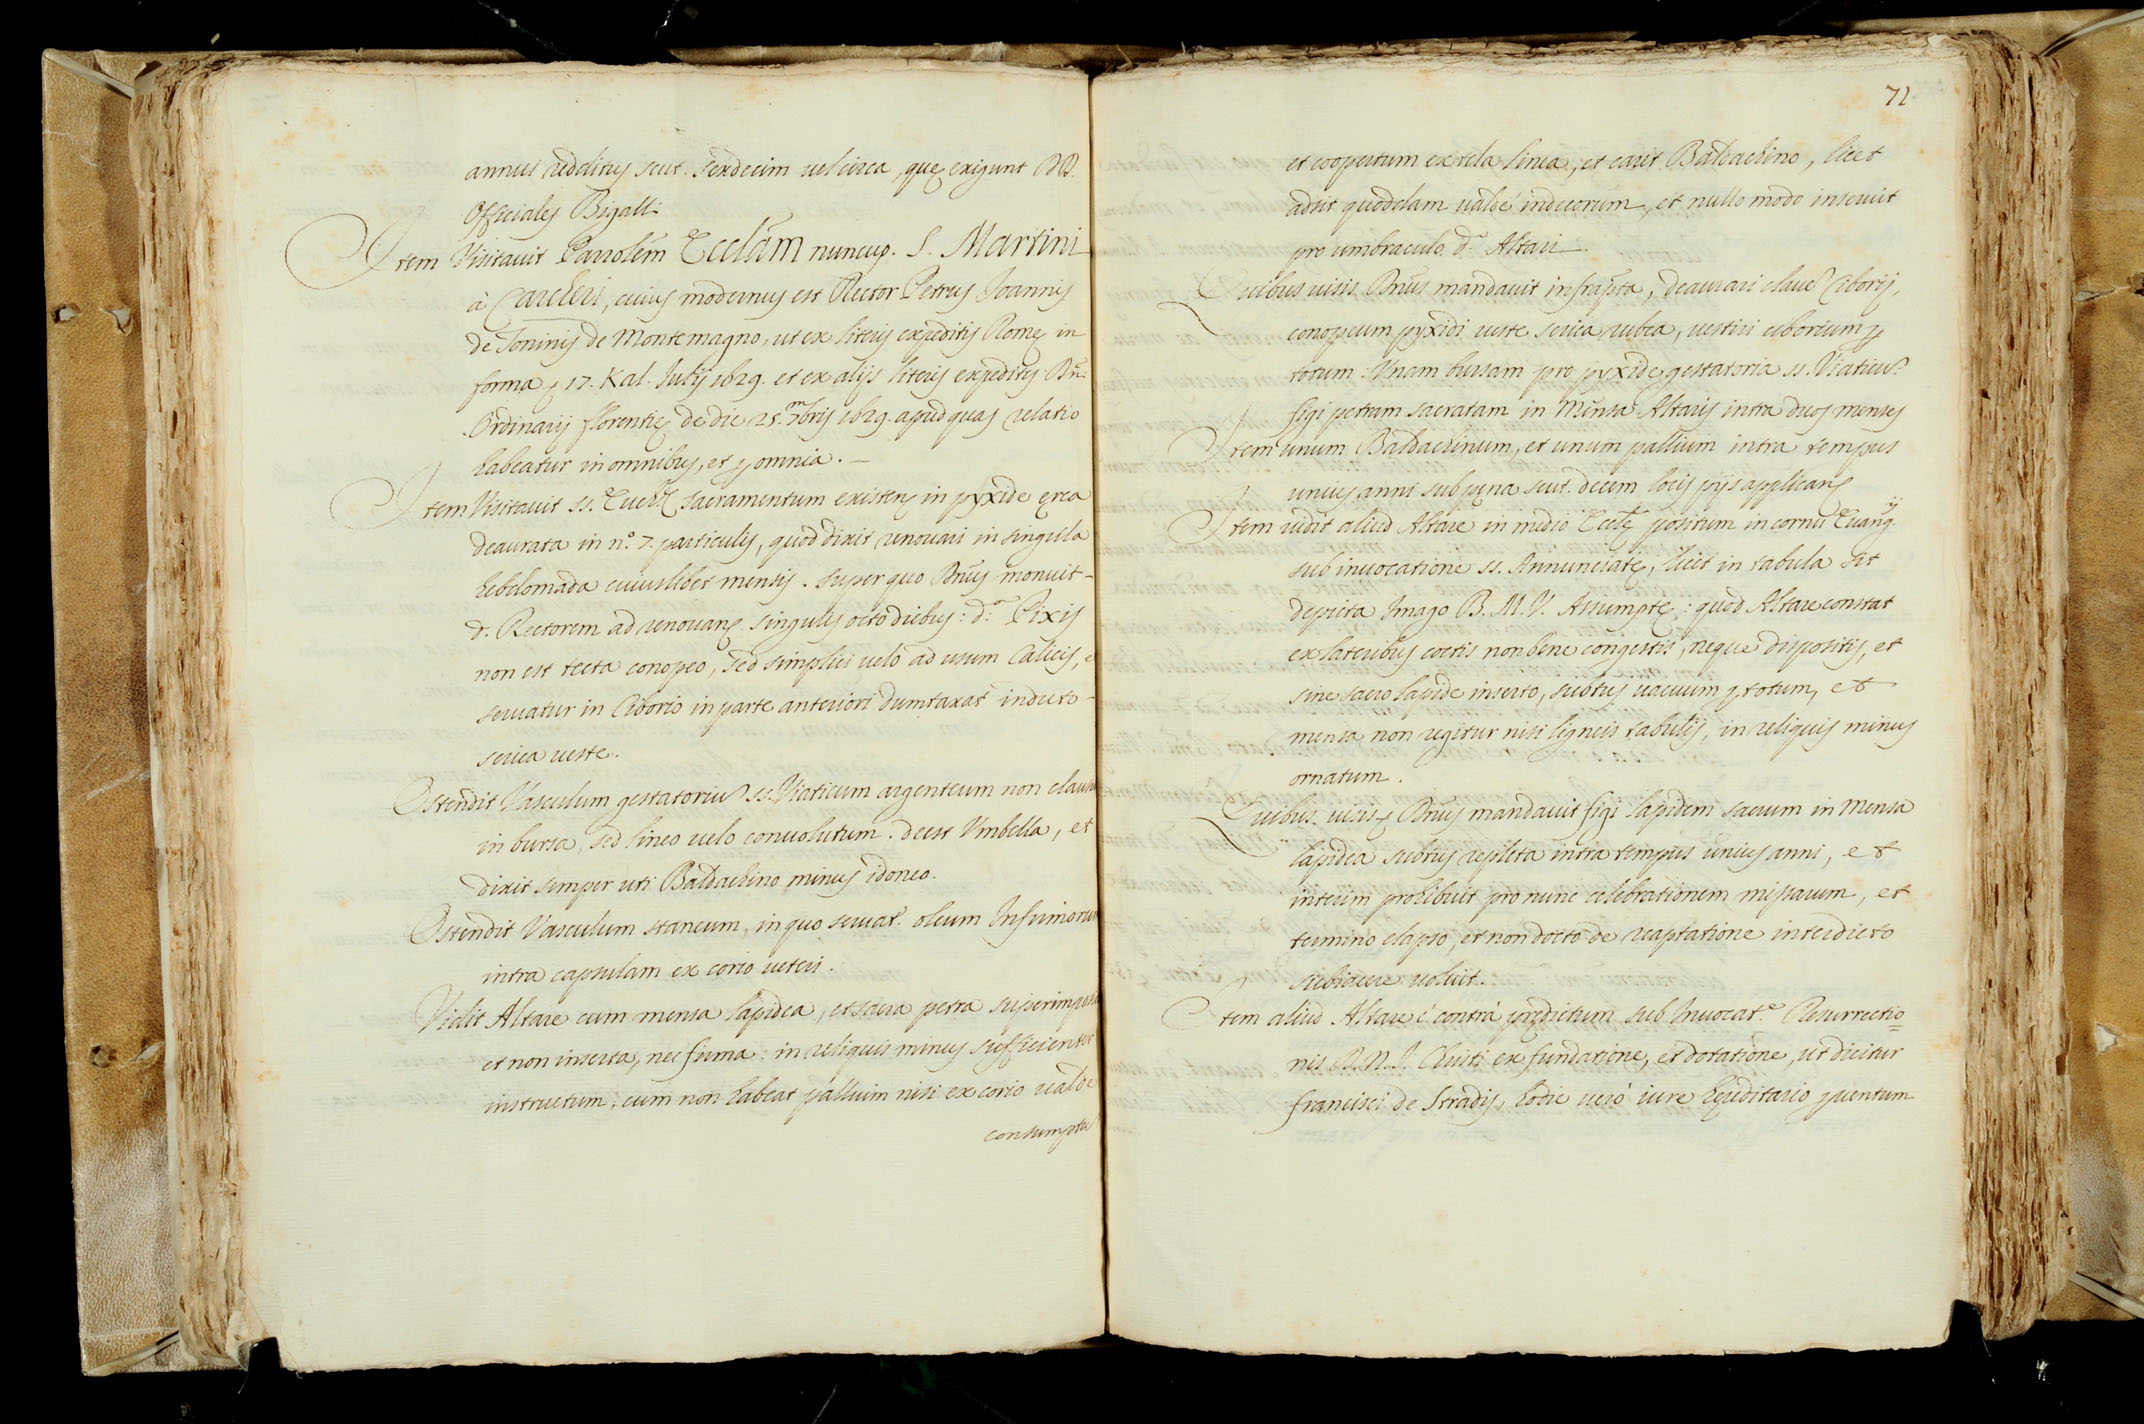 annui redditus scut. sexdecim vel circa, quę exigunt DD.
Officiales Bigalli
Item Visitavit Parrolem Ecclam nuncup. S. Martini
à Carcheri, cuius modernus est Rector Petrus Joannes
de Toninis de Montemagno, ut ex literis expeditis Romę in
forma 17. Kal. Julij 1629. et ex alijs literis expeditis
Ordinarij florentię de die 25. 7mbris 1629. apud quas relatio
habeatur in omnibus, et p omnia.
Item Visitavit ss. Euchę sacramentum existens in pyxide ęrea
deaurata in n.º 7. particulis, quod dixit renovari in singula
hebdomada cuiuslibet mensis. super quo Dnus monuit
d. Rectorem ad renovanę singulis octo diebus: d.ª Pixis
non est tecta conopeo, sed simplici velo ad usum Calicis, e
servatur in Ciborio in parte anteriori dumtaxat induto
serica veste.
Ostendit Vasculum gestatoriu ss. Viaticum argenteum non clausu
in bursa, sed lineo velo convolutum. deest Umbella, et
dixit semper uti Baldachino minus idoneo.
Ostendit Vasculum staneum, in quo servat. oleum Infirmorum
intra capsulam ex corio veteri.
Vidit Altare cum mensa lapidea, et sacra petra superimposita
et non inserta, nec firma: in reliquis minus sufficienter
instructum, cum non habeat pallium nisi ex corio valde
consumpta
71
et coopertum ex tela linea, et caret Baldachino, licet
adsit quoddam valde indecorum, et nullo modo inservit
pro umbraculo d. Altari.
Quibus visis Dnus mandavit infrapta, deaurari clave Ciborij,
conopeum pyxidi veste serica rubea, vestiri ciborium p
totum: Unam bursam pro pyxide gestatoria ss. Viaticu
figi petram sacratam in Mensa Altaris intra duos menses
Item unum Baldachinum, et unum pallium intra tempus
unius anni sub pęna scut. decem locis pijs applicanę
Item vidit aliud Altare in medio Ecclę positum in cornu Evang.ij
sub invocatione ss. Annunciatę, licet in tabula sit
depicta Imago B. M. V. Assumptę: quod Altare constat
ex lateribus coctis non bene congestis, neque dispositis, et
sine sacro lapide inserto, subtus vacuum p totum, et
mensa non tegitur nisi ligneis tabulis, in reliquis minus
ornatum.
Quibus visis Dnus mandavit figi lapidem sacrum in Mensa
lapidea subtus repleta intra tempus unius anni, et
interim prohibuit pro nunc celebrationem missarum, et
termino elapso, et non docto de reaptatione interdicto
subiacere voluit.
Item aliud Altare è contrà prędictum sub Invocat.e Resurrectio=
nis D. N. J. Christi ex fundatione, et dotatione, ut dicitur
Francisci de Stradis, hodie verò iure hęreditario pventum